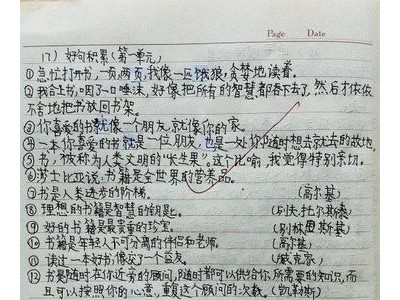 Page Date
17) 好句积累(第一单元)
①急忙打开书,一页,两页,我像一匹饿狼,贪婪地读着。
②我合上书,咽了一口唾沫,好像把所有的智慧都吞下去了,然后才依依
不舍地把书放回书架。
③你喜爱的书就像一个朋友,就像你的家。
④一本你喜爱的书就是一位朋友,也是一处你随时想去就去的故地。
⑤书,被称为人类文明的“长生果”。这个比喻,我觉得特别亲切。
⑥莎士比亚说:书籍是全世界的营养品。
⑦书是人类进步的阶梯。 (高尔基)
⑧理想的书籍是智慧的钥匙。 (列夫·托尔斯泰)
⑨好的书籍是最贵重的珍宝。 (别林思斯基)
⑩书籍是年轻人不可分离的伴侣和老师。 (高尔基)
⑪读过一本好书,像交了一个益友。 (臧克家)
⑫书是随时在你近旁的顾问,随时都可以供给你所需要的知识,而
且可以按照你的心意,重复这个顾问的次数。(凯勒斯)